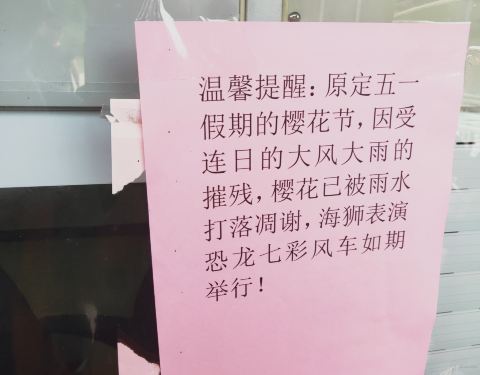 温馨提醒：原定五一
假期的樱花节，因受
连日的大风大雨的
摧残，樱花已被雨水
打落凋谢，海狮表演
恐龙七彩风车如期
举行！